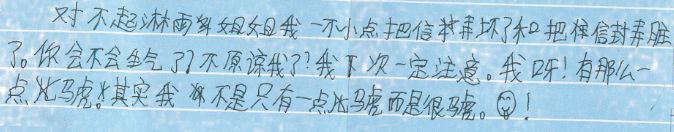 对不起淋雨的姐姐我一不小点把信封弄坏了和把样信封弄脏
了。你会不会生气了？不原谅我了？我下次一定注意。我呀！有那么一
点儿马虎！其实我不是只有一点儿马虎而是很马虎。！